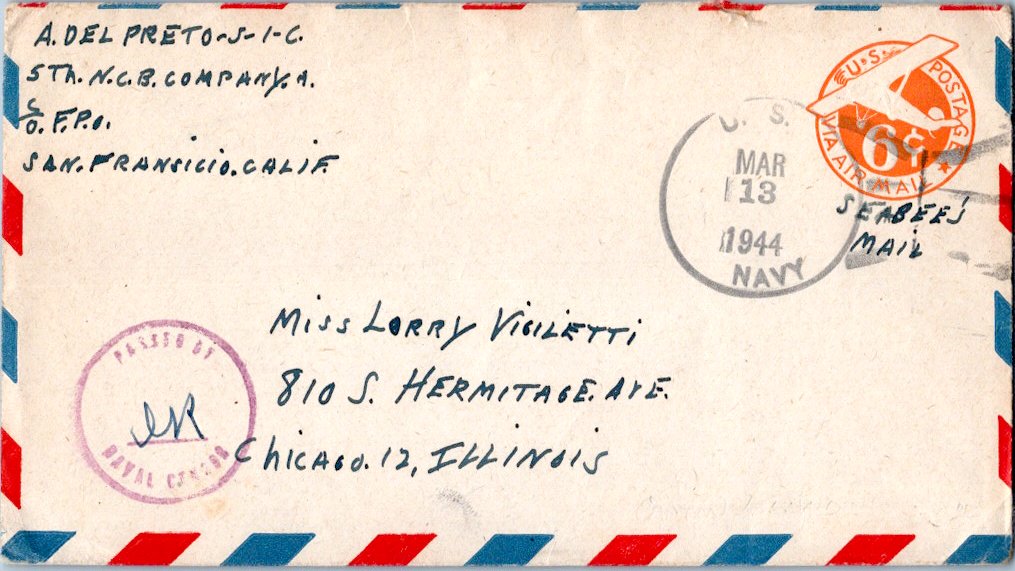 A. DEL PRETO-S-1-C.
5Th. N.C.B. COMPANY. A.
C/O. F.P.O.
SAN. FRANSICIO. CALIF.
U.S. POSTAGE
6¢
VIA AIR MAIL
U. S.
MAR
13
1944
NAVY
SEABEE'S
MAIL
MISS LORRY VIGILETTI
810 S. HERMITAGE. AVE.
CHICAGO. 12, ILLINOIS
PASSED BY
NAVAL CENSOR